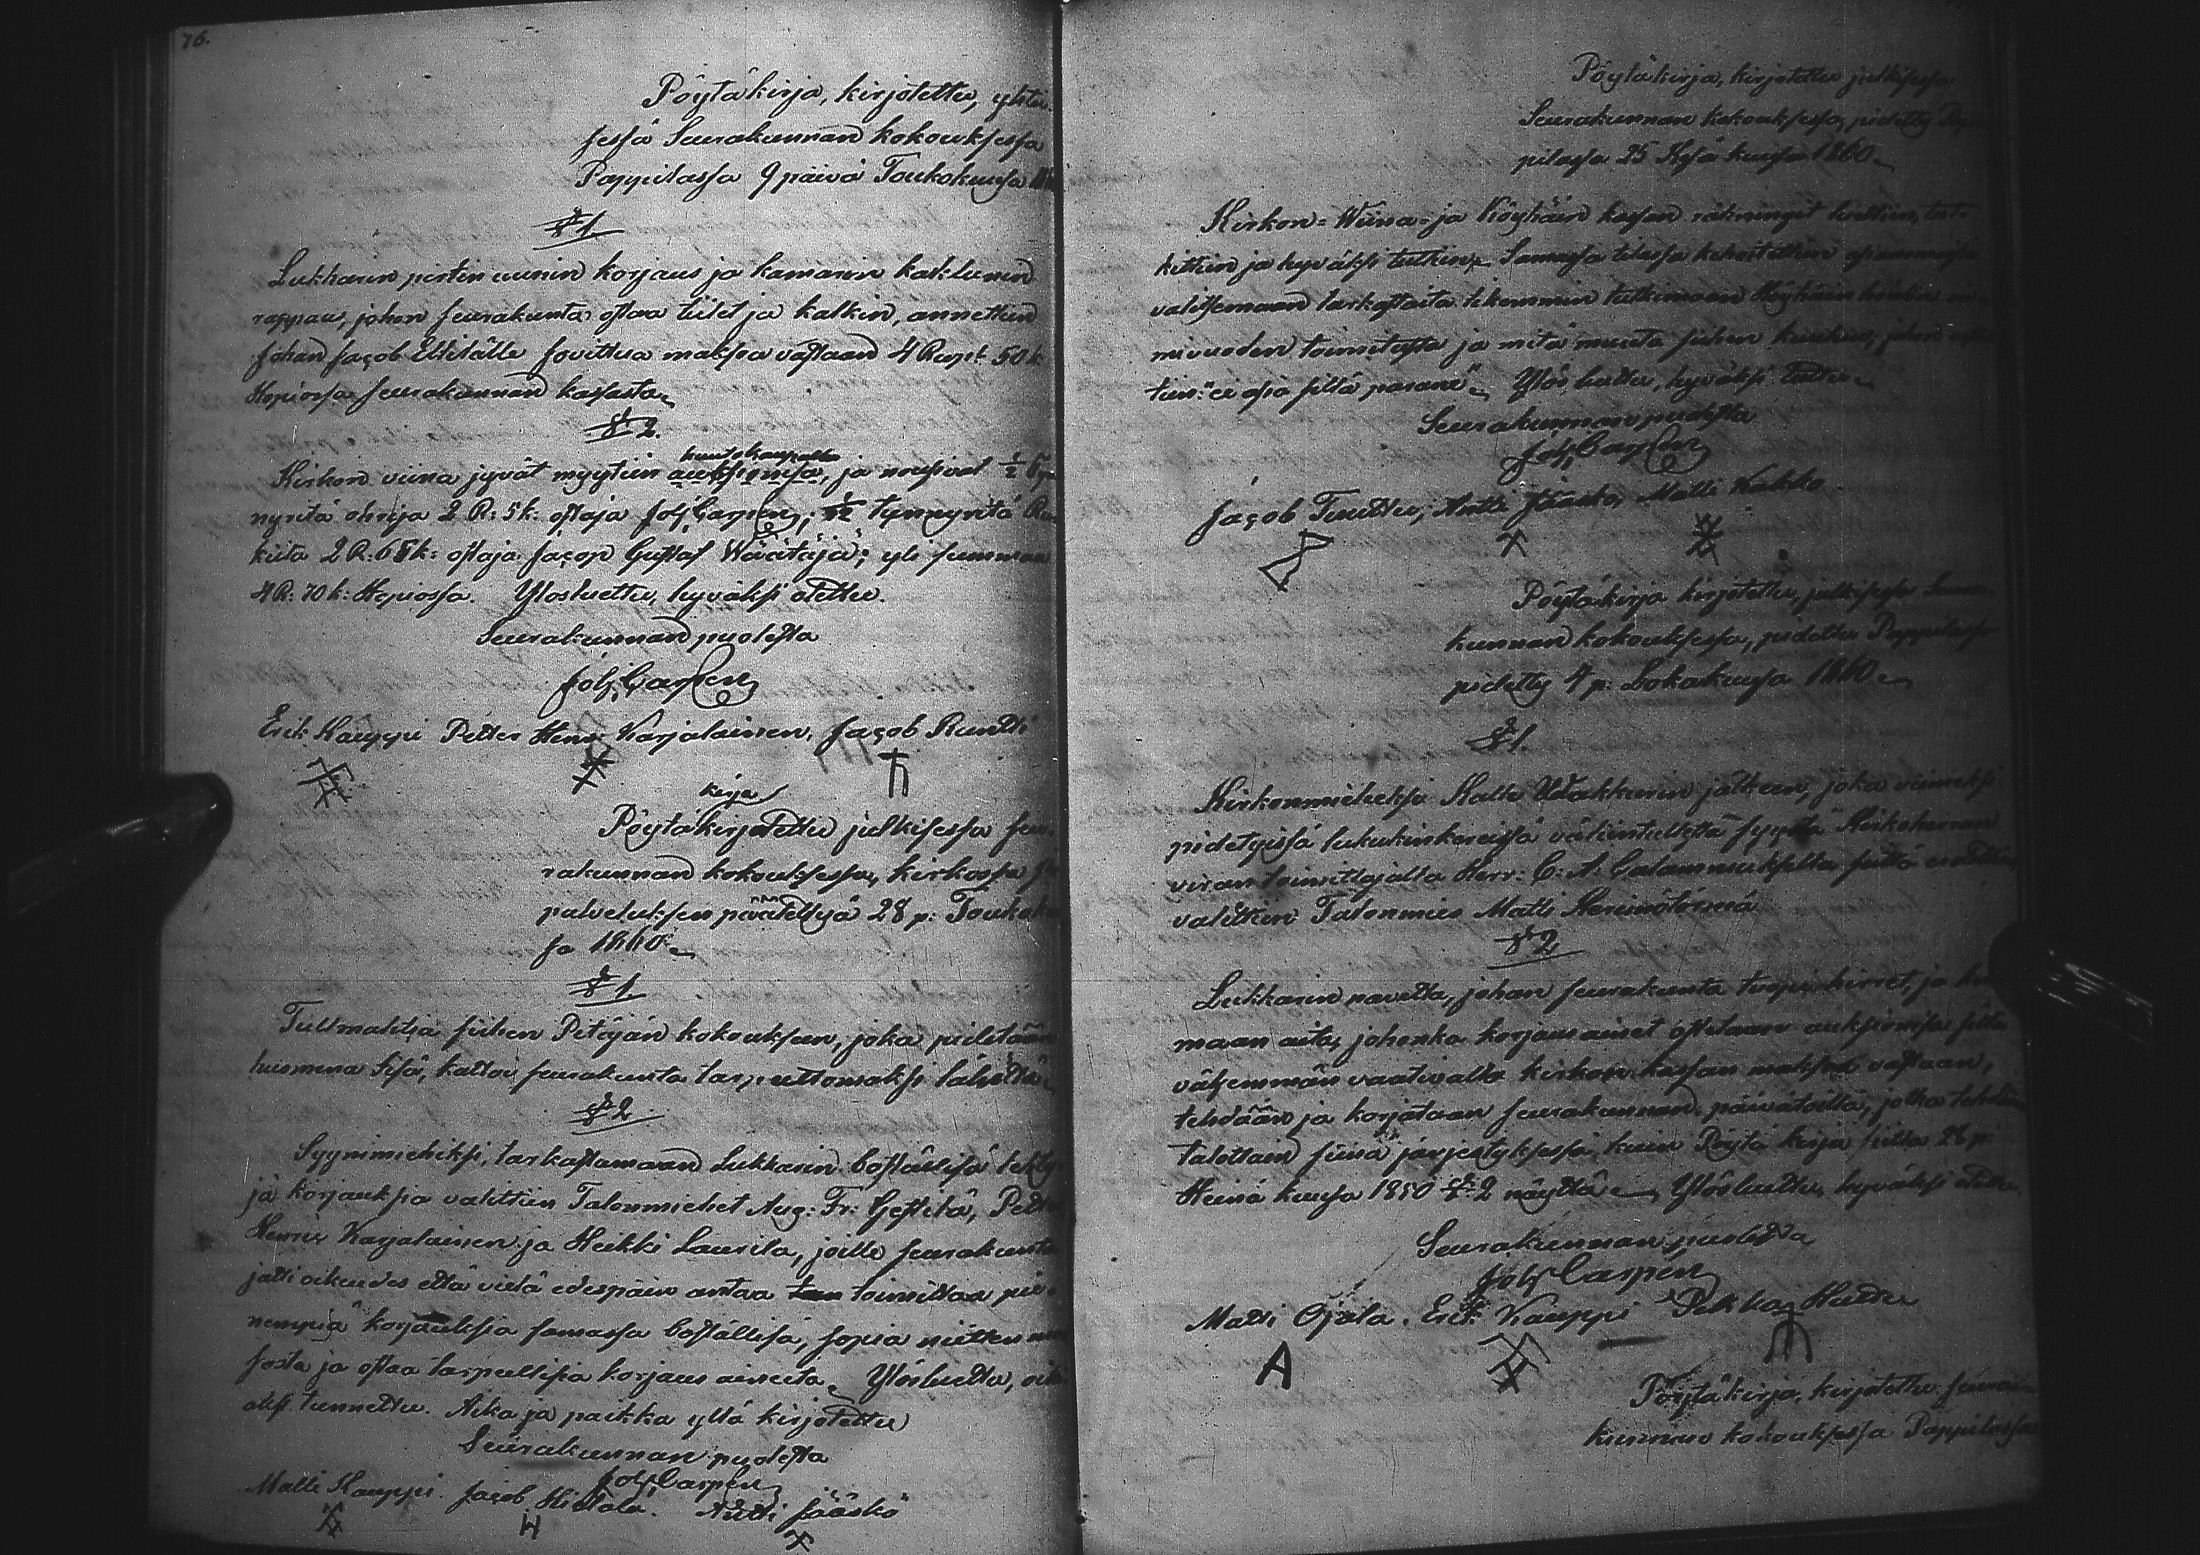 76.
Pöytäkirja, kirjotettu, yhtei-
sessä Seurakunnan kokouksessa
Pappilassa 9 päivä Toukokuusa
§ 1.
Lukkarin pirtin uunin korjaus ja kamarin kaklunin
rappau, johon seurakunta ostaa tiilet ja kalkin, annettiin
Johan Jacob sovittua maksua vastaan 4 Rupt. 50 k
Hopiossa seurakunnan kassasta
§ 2.
huutokaupalla
Kirkon viina jyvät myytiin auksionisa, ja nousivat ½ tyn
nyritä ohrija 2 R: 5 k: ostaja Joh. Carpen; ½ tynnyritä Ru
kiita 2 R: 65 k: ostaja Jacop Gustaf Wäätäjä; yli summan
4 R: 70 k: Hopiossa. Ylösluettu, hyväksi otettu.
Seurakunnan puolesta
Joh. Carpen
Erik Kauppi Petter Henr. Karjalainen, Jacob Runtti
kirja
Pöytäkirjotettu julkisessa seu-
rakunnan kokouksessa, kirkossa
palveluksen päätettyä 28 p: Touko
sa 1860.
§ 1.
Tullmahtia siihen Pitäjän kokouksen, joka pidetään
huomena katsoi seurakunta tarpeettomaksi lähettä
§ 2.
Syynimiehiksi, tarkastamaan Lukkarin boställisä tehty
jä korjauksia valittiin Talonmiehet Aug: Fr: Pett
Henrik Karjalainen ja Heikki Laurila, joille seurakunta
jätti oikeudes että vielä edespäin antaa toimittaa pie-
nempiä korjauksia samassa boställisä, sopia niitten
sosta ja ostaa tarpeellisia korjaus aineita. Ylösluettu, oik
aksi tunnettu. Aika ja paikka yllä kirjotettu
Seurakunnan puolesta
Joh. Carpen
Matti Kauppi. Jacob Hietala. Antti Jääskö
H
Pöytäkirja, kirjotettu julkisessa
Seurakunnan kokouksessa, pidetty Pap
pilassa 25 kuussa 1860
Kirkon= Wiina= ja Köyhäin kassan räkningit luettiin, tut-
kittiin ja hyväksi tuttiin. Samassa tilassa kehoitettiin
valitsemaan tarkemmin tutkimaan Köyhäin hoidon
nivuoden toimitosta ja mitä muuta siihen kuuluu, johon
tiin: "ei asia siltä parane". Ylös luettu, hyväksi tuttu.
Seurakunnan puolesta
Joh. Carpen
Jacob Tuuttu, Antti Jääskö, Matti Kakko
Pöytäkirja kirjotettu, julkisessa Seura
kunnan kokouksessa, pidettu Pappilassa
pidetty 4 p: Lokakuusa 1860
§ 1.
Kirkonmieheksi Kalle jälkeen, joka viimeksi
pidetyissä lukukinkereissä väliintulletta syystä Kirkoherran
viran toimittajalta Herr: C: A: siitä
valittiin Talonmies Matti
§ 2.
Lukkarin navetta, johon seurakunta tuopi hirret, ja
maan aita, johonka korjaus aineet ostetaan auksionissa
vähemmän vaativalta kirkon kassan maksua vastaan,
tehdään ja korjataan seurakunnan päivätöillä, jotka tehdään
talottain siinä järjestyksessä kuin Pöytä kirja siitta 28 p:
Heinä kuusa 1850 § 2 näyttä. Ylösluettu, hyväksi otettu.
Seurakunnan puolesta
Joh Carpen
Matti Ojala. Erik Kauppi Pekka Huttu
A
Pöytäkirja, kirjotettu seura
kunnan kokouksessa Pappilassa